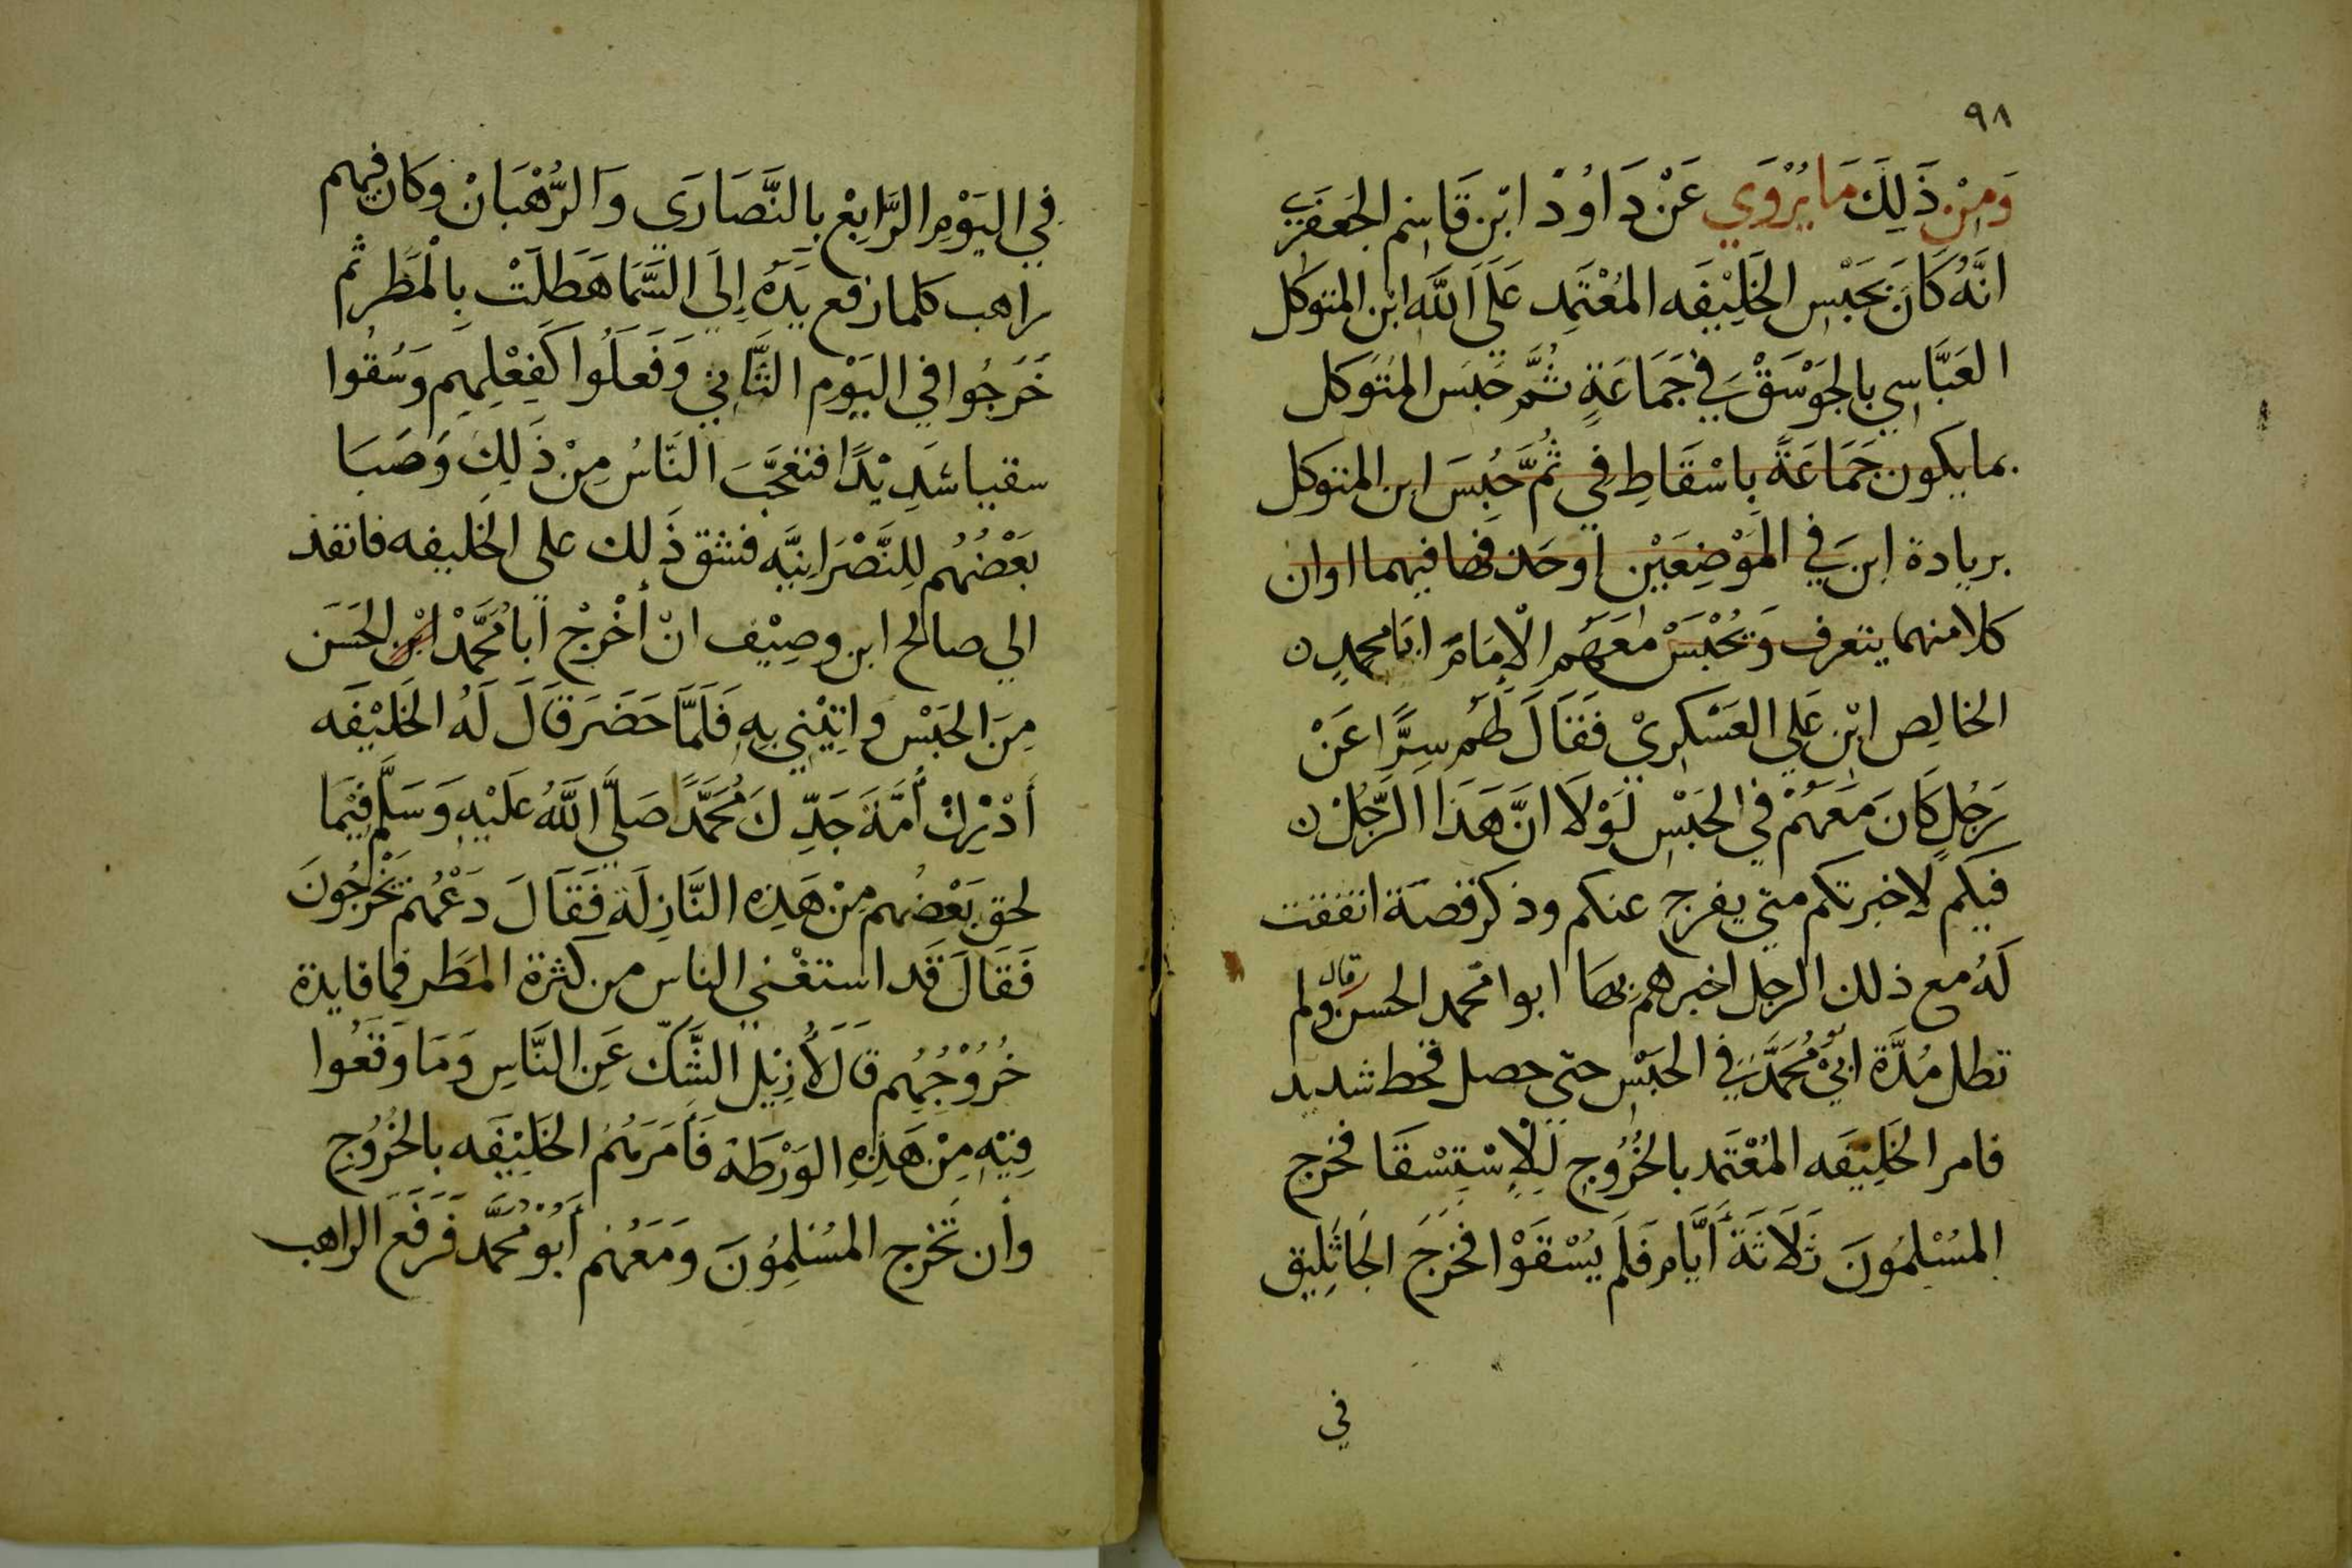 ٩٨
وَمِنْ ذَلِكَ مَا يُرْوَي عَنْ دَاوُدْ ابْن قَاسِم الجَعفَري
انَّهُ كَانَ بحَبْس الخَلِيْفَه المُعْتَمِد عَلَي اللَّه ابْن المتوكل
العَبَّاسِي بالجَوْسَقْ فِي جَمَاعَةٍ ثُمَّ حَبَسَ المُتَوَكل
بما يكون جَمَاعَةً بِاسْقَاطِ في ثُمَّ حُبِسَ ابن المتوكل
بريادة ابن فِي المَوْضِعَيْن اوحذفها فيهما اوان
كلا منهما يتعرف وَيُحْبَسْ مَعَهُم الْاِمَامَ ابَا محمدٍ ن
الخالِص ابْن عَلِي العَسْكَرِيْ فَقَالَ لَهُم سِرًّا عَنْ
رَجُلٍ كَانَ مَعَهُمْ في الحَبْسِ لَوْلَا انَّ هَذَا الرَّجُلْ ن
فيكم لاخبرتكم متي يفرج عنكم وذكر قصة اتفقت
لَهُ مع ذلك الرجل اخبرهم بها ابوا محمد الحسن قال ولم
تطل مُدَّة ابيْ مُحَمَّدٍ فِي الحَبْسِ حتي حصل قحط شديد
فامر الخَلِيْفَه المُعْتَمد بالخُرُوجِ لِلْاِسْتِسْقَا فخرج
المُسْلِمُونَ ثَلَاثَةَ أَيَّام فَلَم يُسْقَوْا فخَرَجَ الجَاثَلِيق
في
في اليَوْمِ الرَّابِعْ بِالنَّصَارَى وَالرُّهْبَانْ وكان فيهم
راهب كلما رفع يَدَهُ إِلَي السَّمَا هَطَلَتْ بِالْمَطَر ثم
خَرَجُوا في اليَوْم الثَّانِي وَفَعَلُوا كَفِعْلِهِم وَسُقُوا
سقيا شَدِيْدًا فتعَجَّبَ النَّاسُ مِنْ ذَلِكَ وَصَبَا
بَعْضُهُم لِلنَّصْرَانِيَّه فشق ذَلك علي الخَليفه فانفذ
الي صالح ابن وصِيْف انْ أَخْرِجْ أَبَا مُحَمَّدْ ابْن الحَسَن
مِنَ الحَبْس واتِيْنِي بِهِ فَلَمَّا حَضَرَ قَالَ لَهُ الخَلِيْفَه
أَدْرِكْ أُمَّةَ جَدِّكَ مُحَمَّدً صَلَّي اللَّهُ عَلَيْهِ وَسَلَّم فِيْمَا
لحق بَعْضُهم مِنْ هَذِهِ النَّازِلَة فَقَالَ دَعْهُم يَخْرُجُونَ
فَقَالَ قَد استغْني الناس من كثرة المَطَر فما فايدة
خُرُوْجِهِم قَالَ لَأُزِيْلَ الشَّكَّ عَنِ النَّاسِ وَمَا وَقَعُوا
فِيْهِ مِنْ هَذِهِ الوَرْطَة فَأَمَرَهُمُ الخَلِيْفَه بالخُرُوجِ
وأن تَخرج المُسْلِمُونَ وَمَعَهُم أَبُوْ مُحَمَّد فَرَفَعَ الراهب